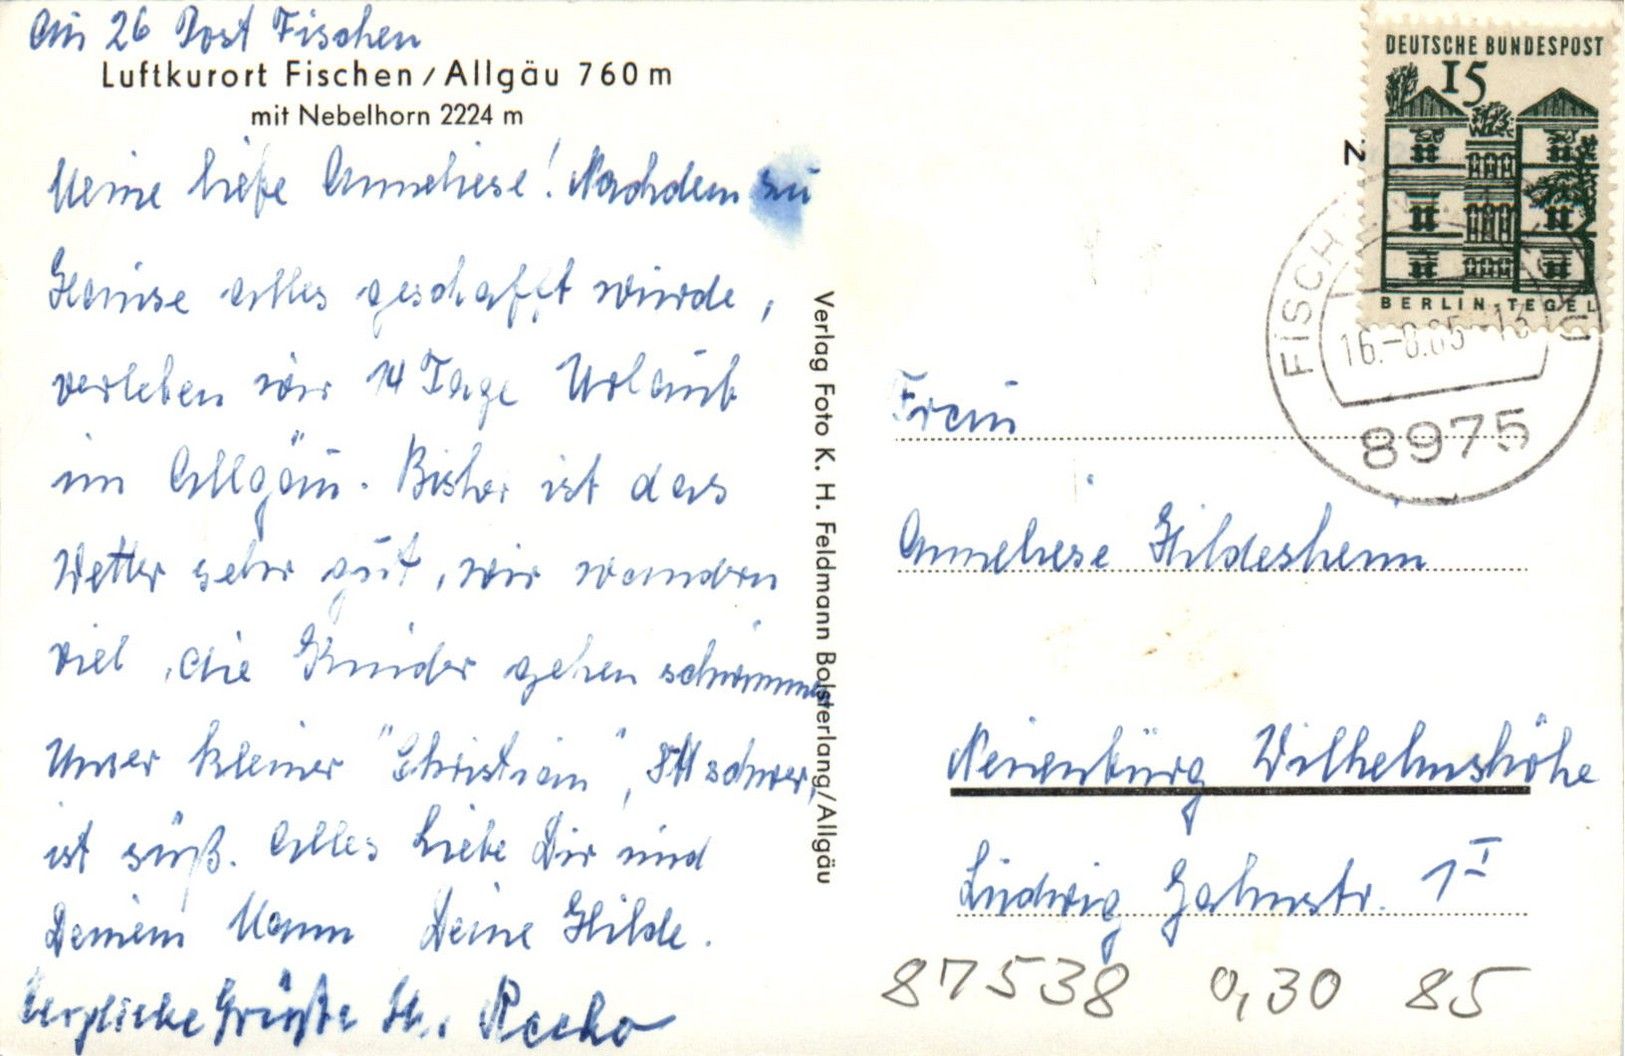 26 Post Fischen
Luftkurort Fischen / Allgäu 760 m
mit Nebelhorn 2224 m
Meine liebe Anneliese! Nachdem zu
Hause alles geschafft wurde,
verleben wir 14 Tage Urlaub
im Allgäu. Bisher ist das
Wetter sehr gut, wir wandern
viel, die Kinder gehen schwimmen
Unser kleiner "Christian",
ist süß. Alles Liebe Dir und
Deinem Mann Deine Hilde.
Herzliche Grüße
Verlag Foto K. H. Feldmann Bolsterlang/Allgäu
DEUTSCHE BUNDESPOST
15
BERLIN-TEGEL
z
FISCH
16.-8.65-13
8975
Frau
Anneliese Hildesheim
Neuenbürg Wilhelmshöhe
Ludwig Hahnstr. 1 I
87538 0,30 85